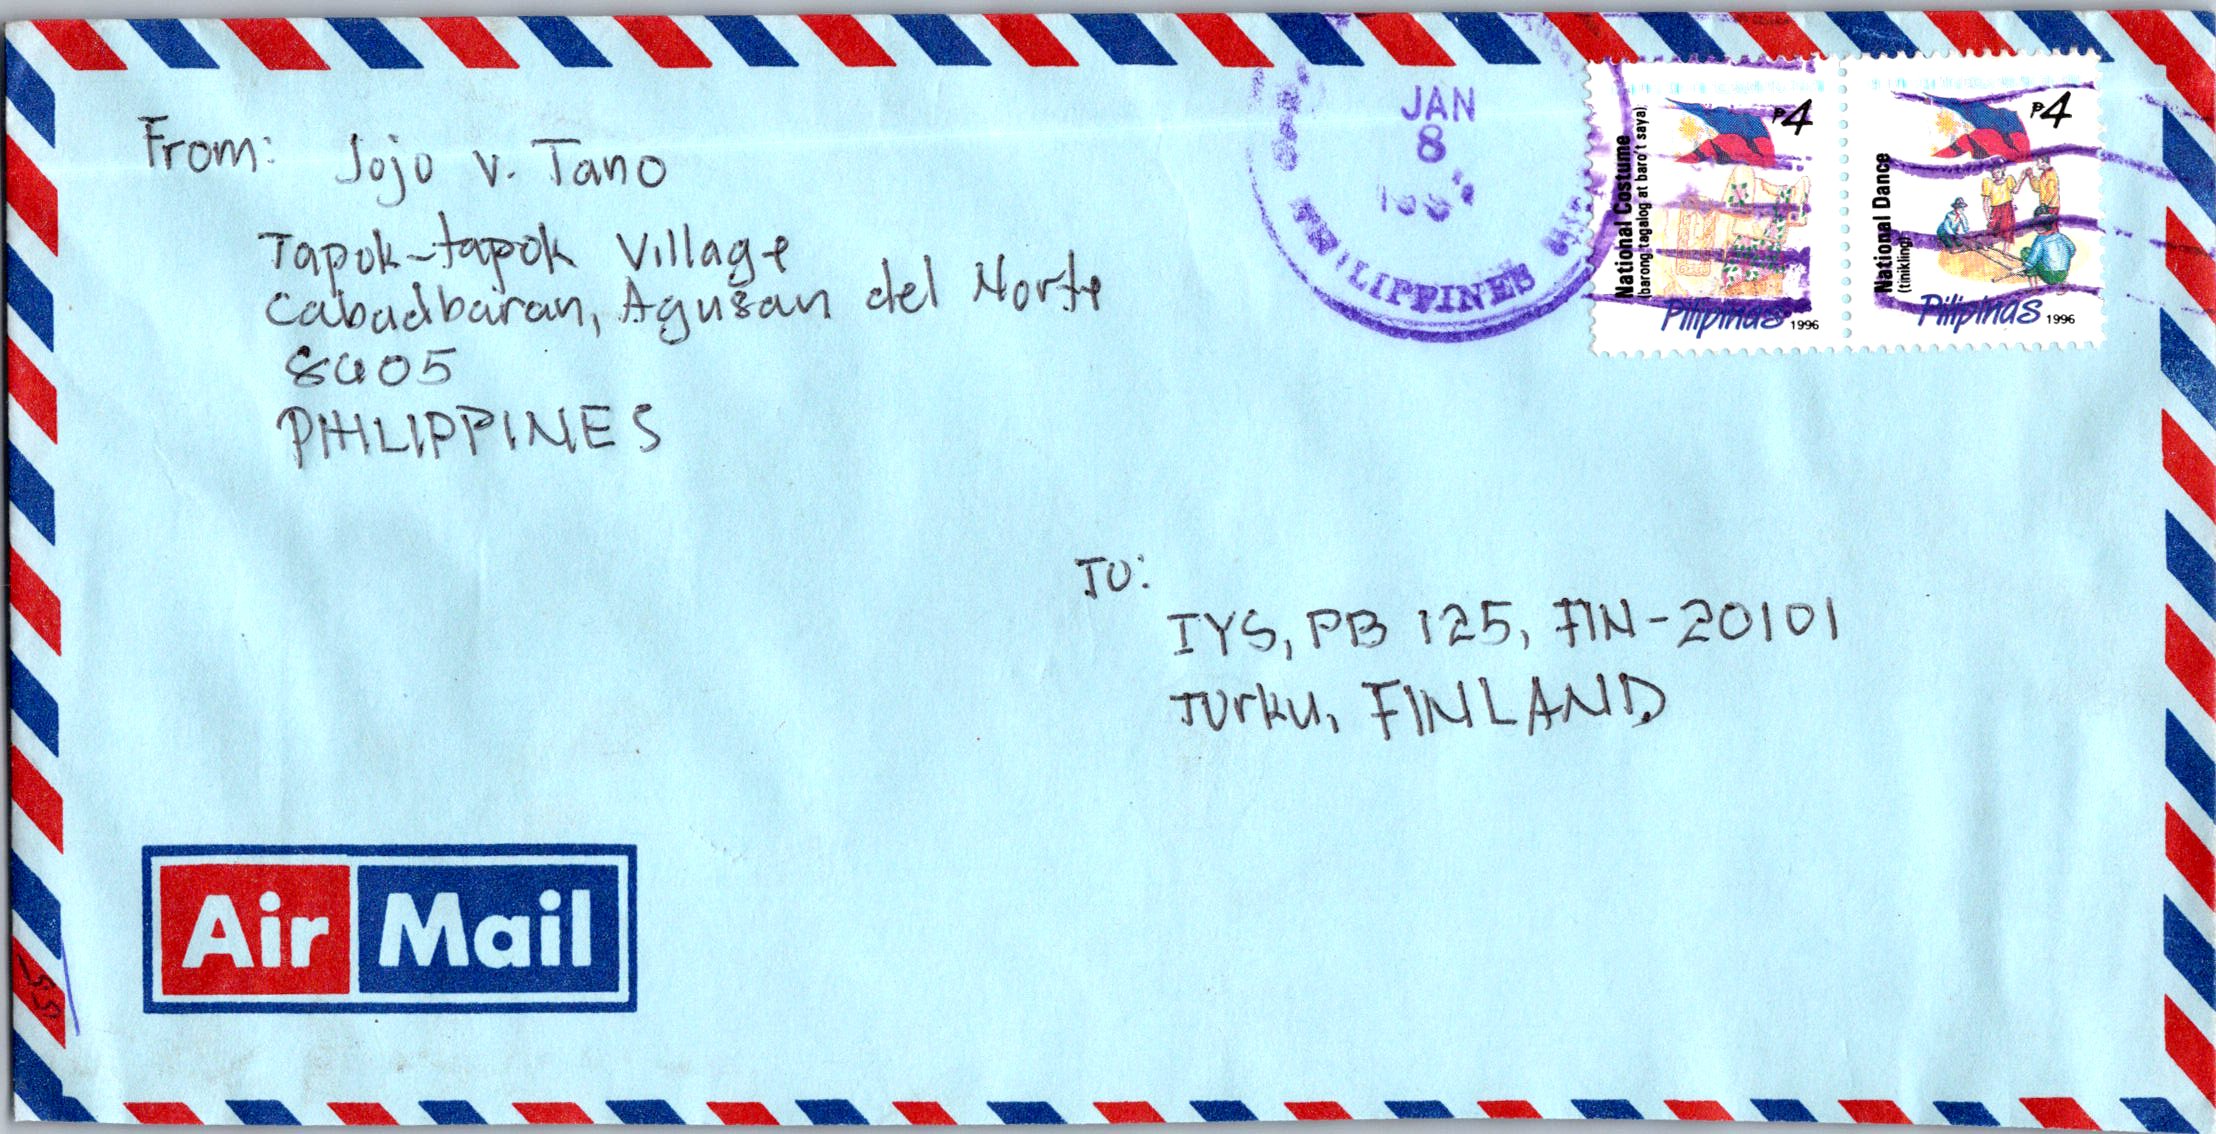 From: Jojo V. Tano
Tapok-tapok Village
Cabadbaran, Agusan del Norte
8605
PHILIPPINES
JAN
8
PHILIPPINES
₱4
National Costume
(barong tagalog at baro't saya)
Pilipinas 1996
₱4
National Dance
(tinikling)
Pilipinas 1996
To:
IYS, PB 125, FIN-20101
Turku, FINLAND
Air Mail